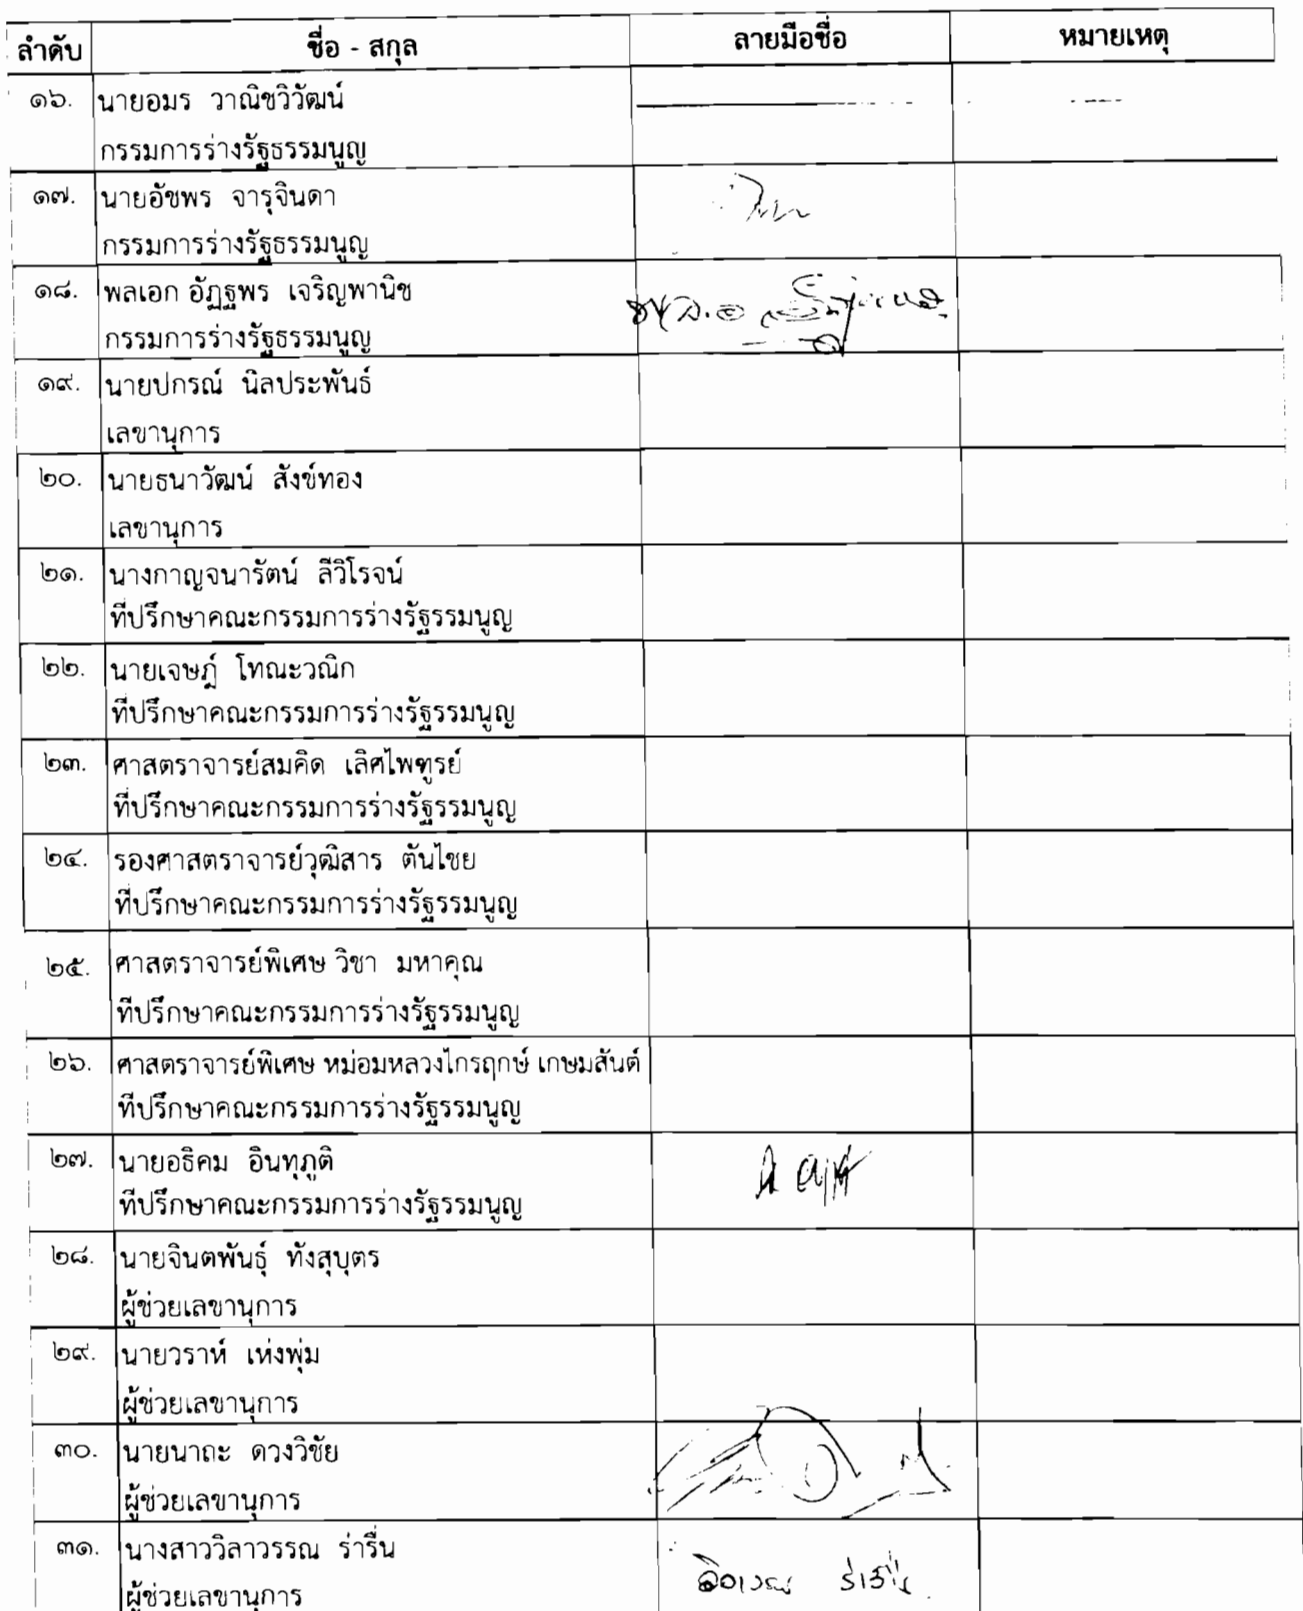 ลำดับ ชื่อ - สกุล ลายมือชื่อ หมายเหตุ
๑๖. นายอมร วาณิชวิวัฒน์
กรรมการร่างรัฐธรรมนูญ
๑๗. นายอัชพร จารุจินดา
กรรมการร่างรัฐธรรมนูญ
๑๘. พลเอก อัฏฐพร เจริญพานิช
กรรมการร่างรัฐธรรมนูญ
๑๙. นายปกรณ์ นิลประพันธ์
เลขานุการ
๒๐. นายธนาวัฒน์ สังข์ทอง
เลขานุการ
๒๑. นางกาญจนารัตน์ ลีวิโรจน์
ที่ปรึกษาคณะกรรมการร่างรัฐรรมนูญ
๒๒. นายเจษฎ์ โทณะวณิก
ที่ปรึกษาคณะกรรมการร่างรัฐรรมนูญ
๒๓. ศาสตราจารย์สมคิด เลิศไพฑูรย์
ที่ปรึกษาคณะกรรมการร่างรัฐรรมนูญ
๒๔. รองศาสตราจารย์วุฒิสาร ตันไชย
ที่ปรึกษาคณะกรรมการร่างรัฐรรมนูญ
๒๕. ศาสตราจารย์พิเศษ วิชา มหาคุณ
ที่ปรึกษาคณะกรรมการร่างรัฐรรมนูญ
๒๖. ศาสตราจารย์พิเศษ หม่อมหลวงไกรฤกษ์ เกษมสันต์
ที่ปรึกษาคณะกรรมการร่างรัฐรรมนูญ
๒๗. นายอธิคม อินทุภูติ
ที่ปรึกษาคณะกรรมการร่างรัฐรรมนูญ
๒๘. นายจินตพันธุ์ ทังสุบุตร
ผู้ช่วยเลขานุการ
๒๙. นายวราห์ เห่งพุ่ม
ผู้ช่วยเลขานุการ
๓๐. นายนาถะ ดวงวิชัย
ผู้ช่วยเลขานุการ
๓๑. นางสาววิลาวรรณ ร่ารื่น
ผู้ช่วยเลขานุการ